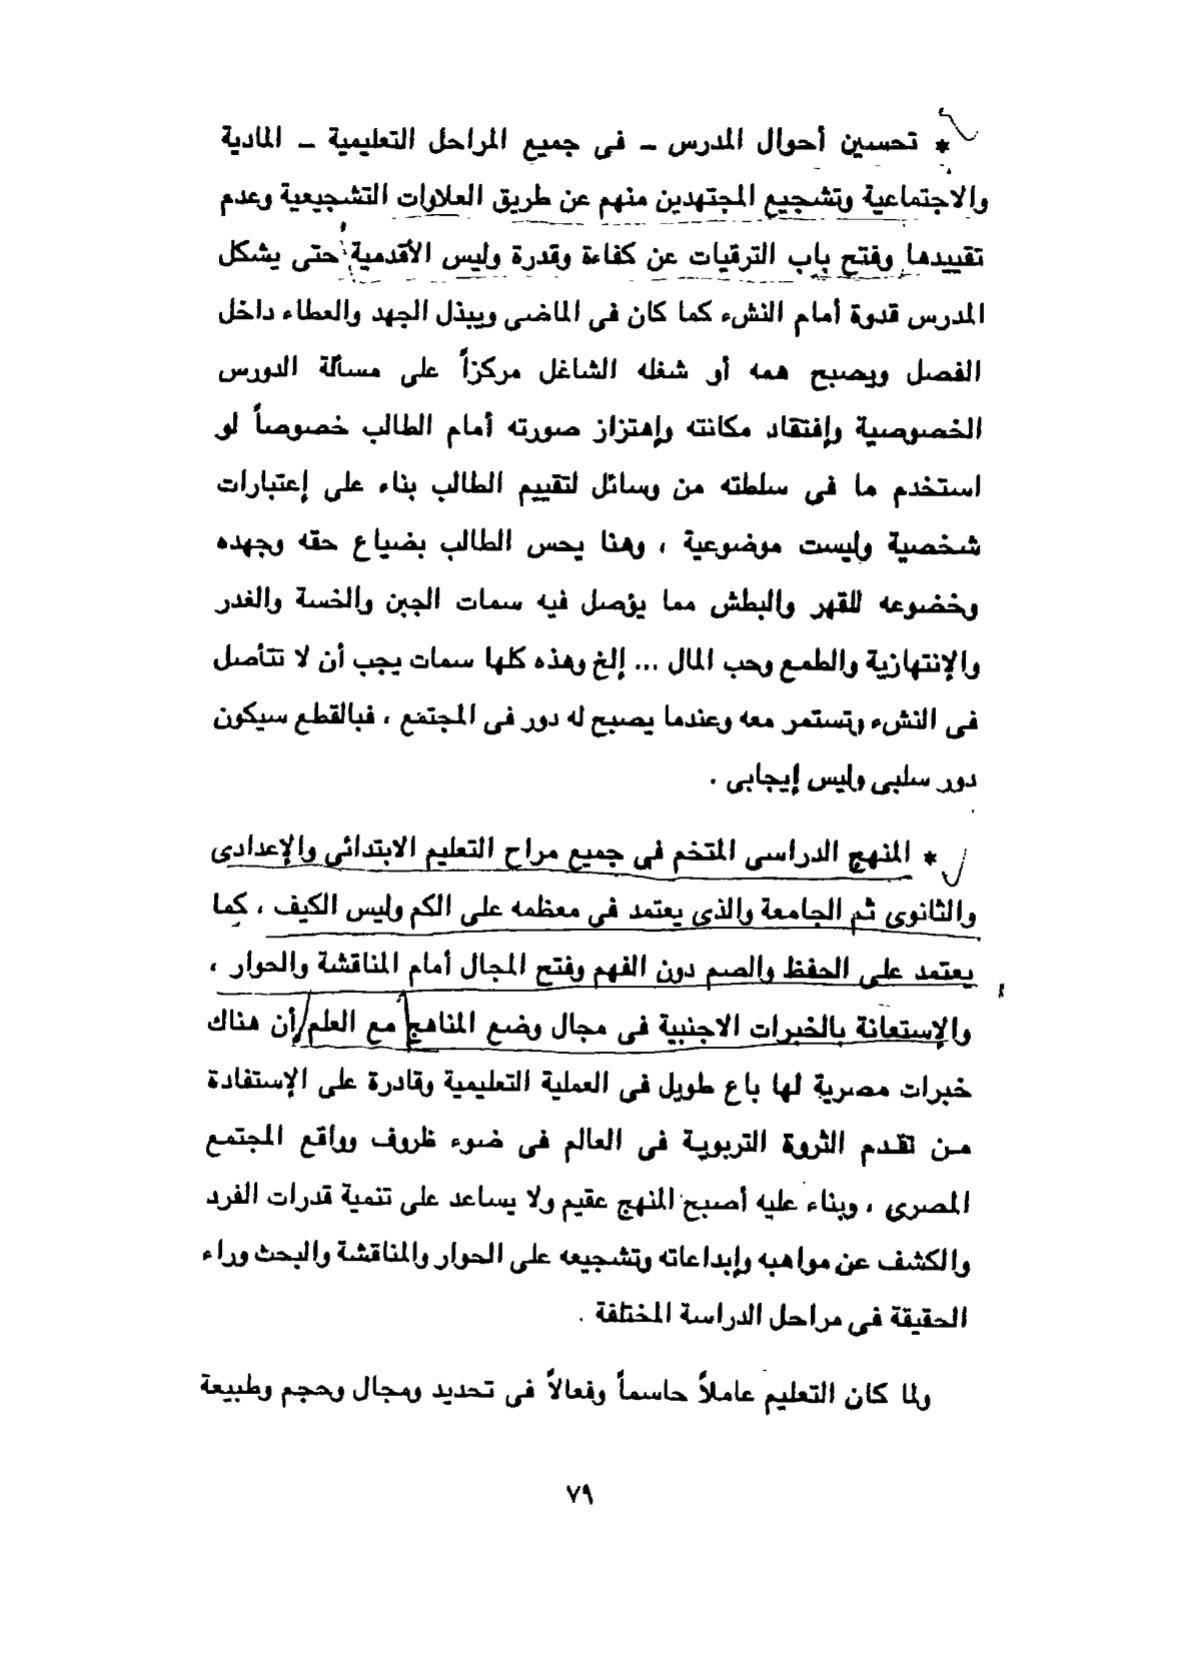 * تحسين أحوال المدرس – فى جميع المراحل التعليمية – المادية
والاجتماعية وتشجيع المجتهدين منهم عن طريق العلاوات التشجيعية وعدم
تقييدها وفتح باب الترقيات عن كفاءة وقدرة وليس الأقدمية حتى يشكل
المدرس قدوة أمام النشء كما كان فى الماضى ويبذل الجهد والعطاء داخل
الفصل ويصبح همه أو شغله الشاغل مركزاً على مسألة الدورس
الخصوصية وإفتقاد مكانته وإهتزاز صورته أمام الطالب خصوصاً لو
استخدم ما فى سلطته من وسائل لتقييم الطالب بناء على إعتبارات
شخصية وليست موضوعية ، وهنا يحس الطالب بضياع حقه وجهده
وخضوعه للقهر والبطش مما يؤصل فيه سمات الجبن والخسة والغدر
والإنتهازية والطمع وحب المال ... إلخ وهذه كلها سمات يجب أن لا تتأصل
فى النشء وتستمر معه وعندما يصبح له دور فى المجتمع ، فبالقطع سيكون
دور سلبى وليس إيجابى .
* المنهج الدراسى المتخم فى جميع مراح التعليم الابتدائى والإعدادى
والثانوى ثم الجامعة والذى يعتمد فى معظمه على الكم وليس الكيف ، كما
يعتمد على الحفظ والصم دون الفهم وفتح المجال أمام المناقشة والحوار ،
والإستعانة بالخبرات الاجنبية فى مجال وضع المناهج مع العلم أن هناك
خبرات مصرية لها باع طويل فى العملية التعليمية وقادرة على الإستفادة
من تقدم الثروة التربوية فى العالم فى ضوء ظروف وواقع المجتمع
المصرى ، وبناء عليه أصبح المنهج عقيم ولا يساعد على تنمية قدرات الفرد
والكشف عن مواهبه وإبداعاته وتشجيعه على الحوار والمناقشة والبحث وراء
الحقيقة فى مراحل الدراسة المختلفة .
ولما كان التعليم عاملاً حاسماً وفعالاً فى تحديد ومجال وحجم وطبيعة
٧٩